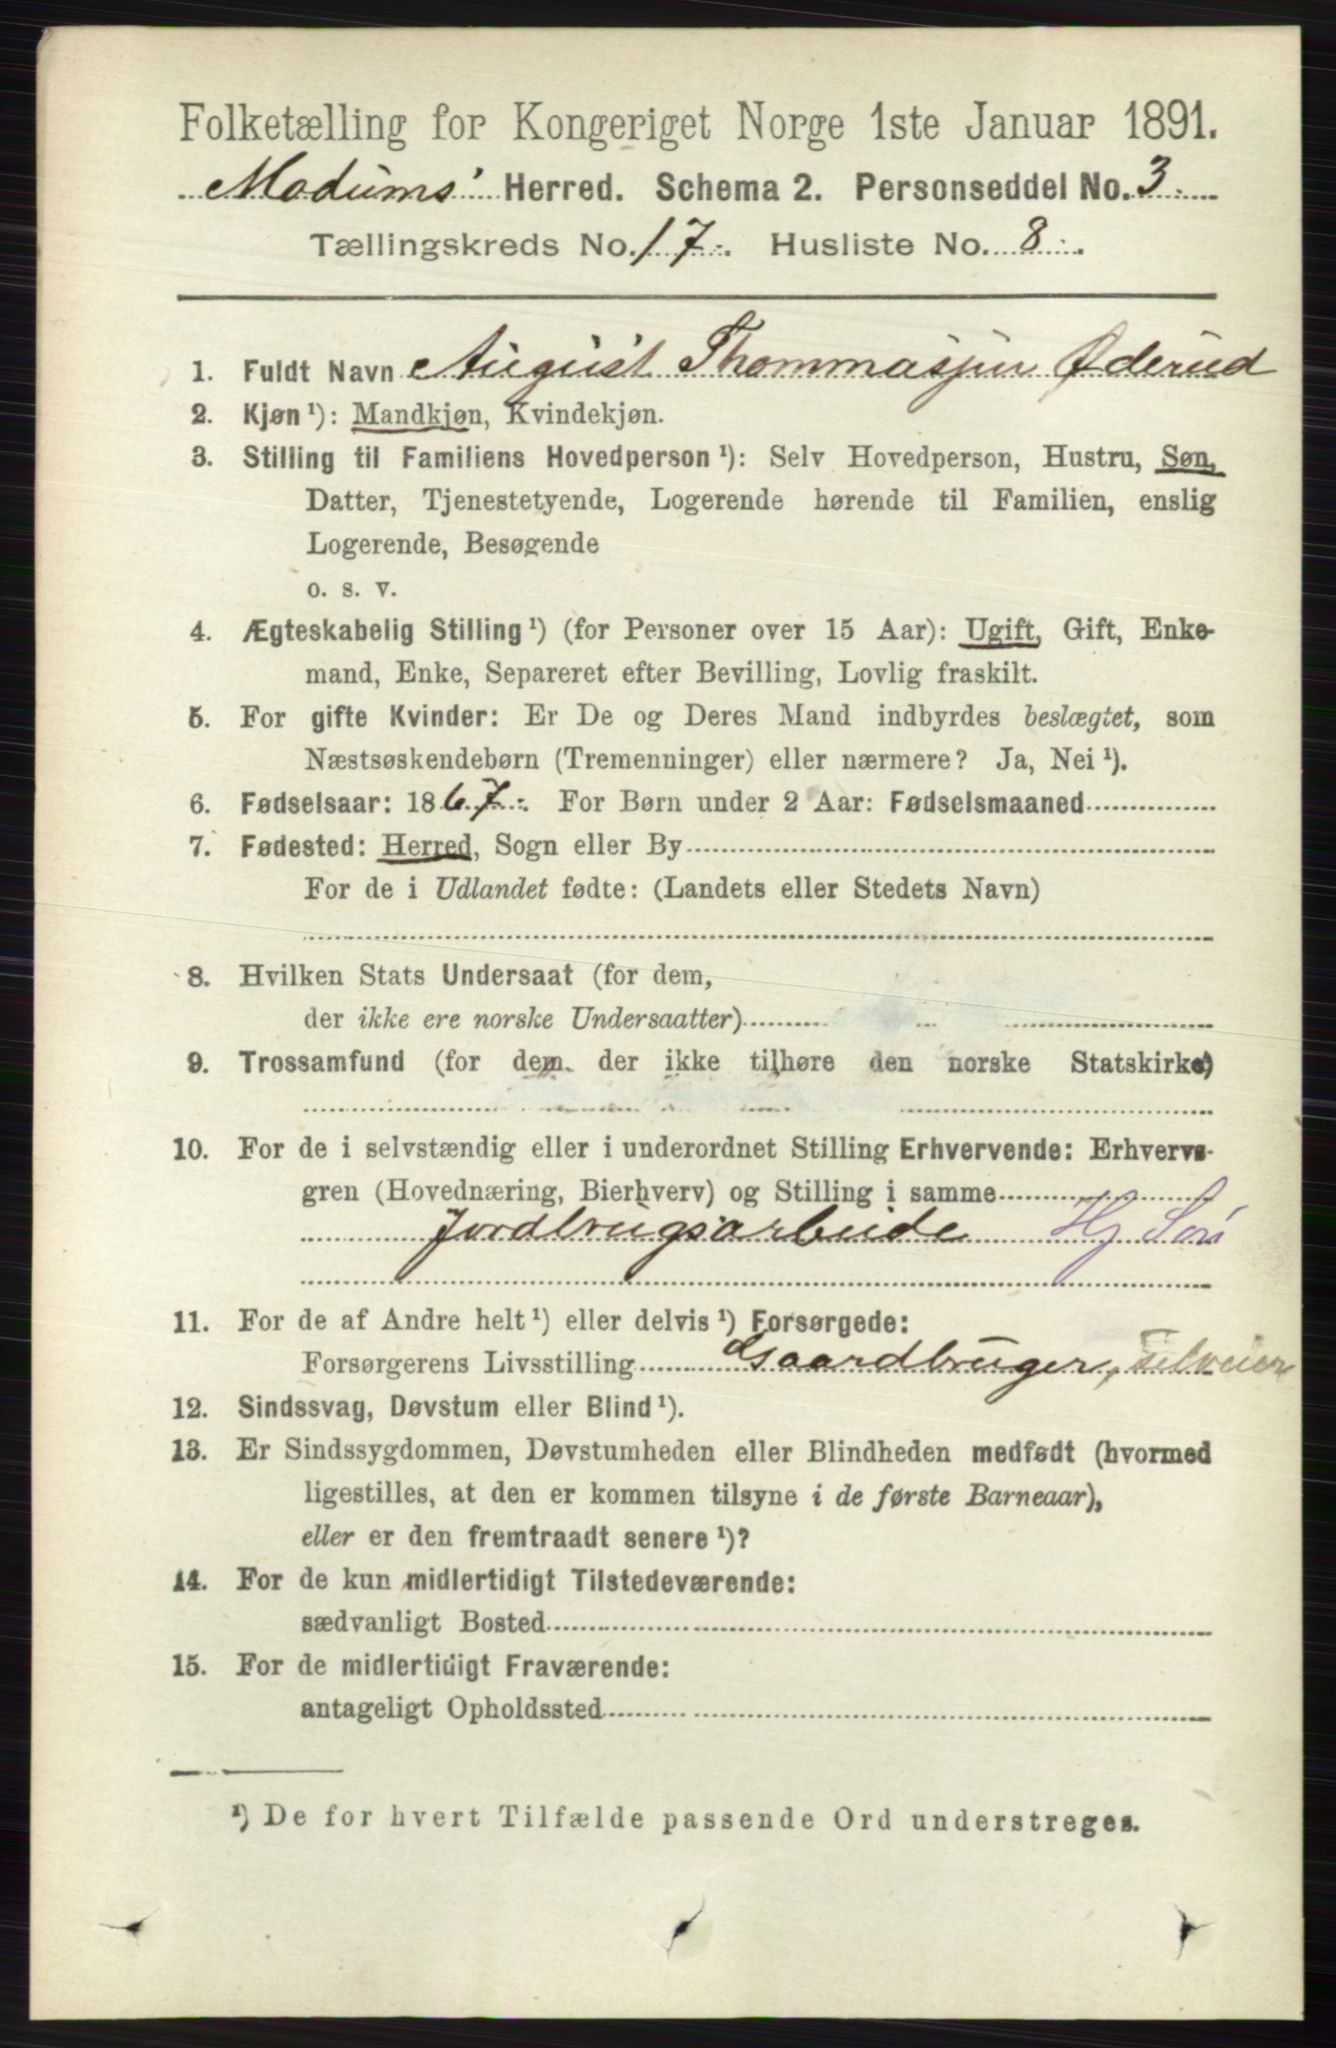 Folketælling for Kongeriget Norge 1ste Januar 1891.
Modums' Herred. Schema 2. Personseddel No. 3.
Tællingskreds No. 17. Husliste No. 8.
1. Fuldt Navn August Thommassen Øderud
2. Kjøn ¹): Mandkjøn, Kvindekjøn.
3. Stilling til Familiens Hovedperson ¹): Selv Hovedperson, Hustru, Søn,
Datter, Tjenestetyende, Logerende hørende til Familien, enslig
Logerende, Besøgende
o. s. v.
4. Ægteskabelig Stilling ¹) (for Personer over 15 Aar): Ugift, Gift, Enke-
mand, Enke, Separeret efter Bevilling, Lovlig fraskilt.
5. For gifte Kvinder: Er De og Deres Mand indbyrdes beslægtet, som
Næstsøskendebørn (Tremenninger) eller nærmere? Ja, Nei ¹).
6. Fødselsaar: 1867. For Børn under 2 Aar: Fødselsmaaned
7. Fødested: Herred, Sogn eller By
For de i Udlandet fødte: (Landets eller Stedets Navn)
8. Hvilken Stats Undersaat (for dem,
der ikke ere norske Undersaatter)
9. Trossamfund (for dem, der ikke tilhøre den norske Statskirke)
10. For de i selvstændig eller i underordnet Stilling Erhvervende: Erhvervs-
gren (Hovednæring, Bierhverv) og Stilling i samme
Jordbrugsarbeide Hj Søn
11. For de af Andre helt ¹) eller delvis ¹) Forsørgede:
Forsørgerens Livsstilling Gaardbruger, selveier
12. Sindssvag, Døvstum eller Blind ¹).
13. Er Sindssygdommen, Døvstumheden eller Blindheden medfødt (hvormed
ligestilles, at den er kommen tilsyne i de første Barneaar),
eller er den fremtraadt senere ¹)?
14. For de kun midlertidigt Tilstedeværende:
sædvanligt Bosted
15. For de midlertidigt Fraværende:
antageligt Opholdssted
¹) De for hvert Tilfælde passende Ord understreges.